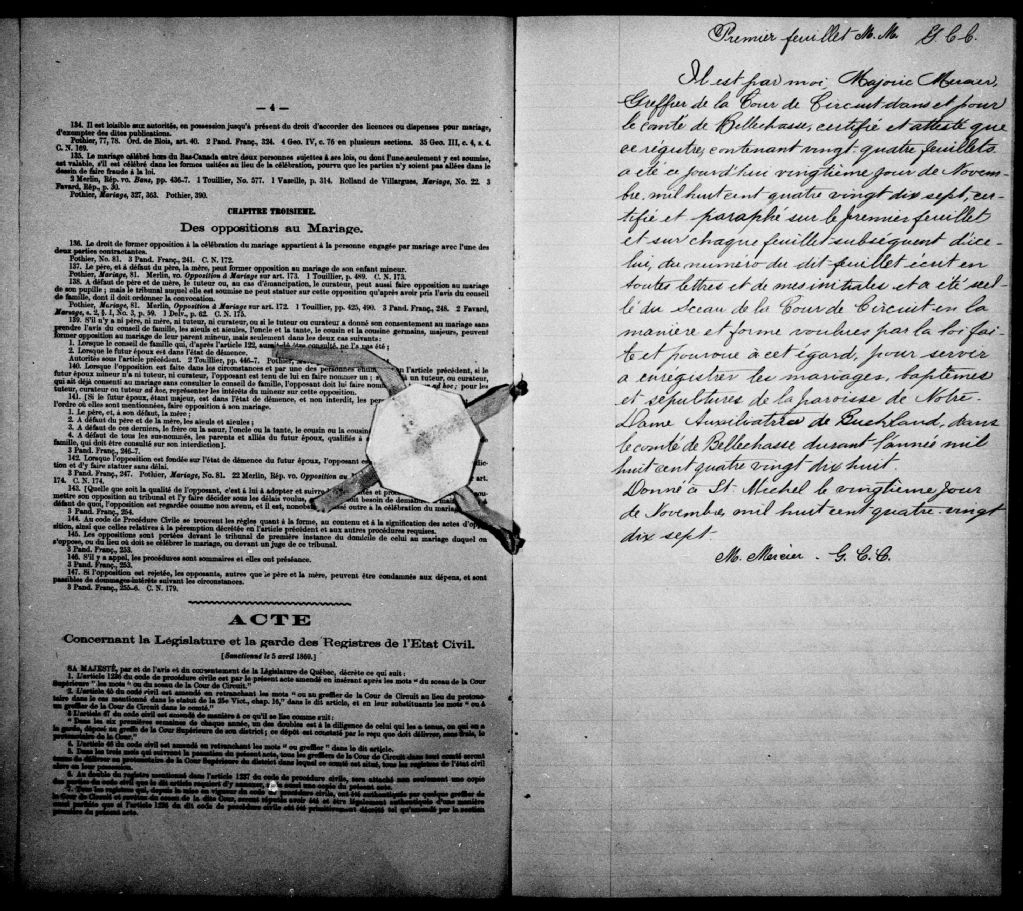 — 4 —
134. Il est loisible aux autorités, en possession jusqu'à présent du droit d'accorder des licences ou dispenses pour mariage,
d'exempter des dites publications.
Pothier, 77, 78. Ord. de Blois, art. 40. 2 Pand. Franç., 324. 4 Geo. IV, c. 76 en plusieurs sections. 35 Geo. III, c. 4, s. 4.
C. N. 169.
135. Le mariage célébré hors du Bas-Canada entre deux personnes sujettes à ses lois, ou dont l'une seulement y est soumise,
est valable, s'il est célébré dans les formes usitées au lieu de la célébration, pourvu que les parties n'y soient pas allées dans le
dessin de faire fraude à la loi.
2 Merlin, Rép. vo. Bans, pp. 436-7. 1 Touillier, No. 577. 1 Vazeille, p. 314. Rolland de Villargues, Mariage, No. 22. 3
Favard, Rép., p. 30.
Pothier, Mariage, 327, 363. Pothier, 390.
CHAPITRE TROISIEME.
Des oppositions au Mariage.
136. Le droit de former opposition à la célébration du mariage appartient à la personne engagée par mariage avec l'une des
deux parties contractantes.
Pothier, No. 81. 3 Pand. Franç., 241. C. N. 172.
137. Le père, et à défaut du père, la mère, peut former opposition au mariage de son enfant mineur.
Pothier, Mariage, 81. Merlin, vo. Opposition à Mariage sur art. 173. 1 Touillier, p. 489. C. N. 173.
138. A défaut de père et de mère, le tuteur ou, au cas d'émancipation, le curateur, peut aussi faire opposition au mariage de
son pupille; mais le tribunal auquel elle est soumise ne peut statuer sur cette opposition qu'après avoir pris l'avis du conseil
de famille, dont il doit ordonner la convocation.
Pothier, Mariage, 81. Merlin, Opposition à Mariage sur art. 172. 1 Touillier, pp. 425, 490. 3 Pand. Franç., 248. 2 Favard,
Mariage, s. 2, § 1, No. 3, p. 59. 1 Delv., p. 62. C. N. 175.
139. S'il n'y a ni père, ni mère, ni tuteur, ni curateur, ou si le tuteur ou curateur a donné son consentement au mariage sans
prendre l'avis du conseil de famille, les aïeuls et aïeules, l'oncle et la tante, le cousin et la cousine germains, majeurs, peuvent
former opposition au mariage de leur parent mineur, mais seulement dans les deux cas suivants:
1. Lorsque le conseil de famille qui, d'après l'article 122, aurait dû être consulté, ne l'a pas été;
2. Lorsque le futur époux est dans l'état de démence.
Autorités sous l'article précédent. 2 Touillier, pp. 446-7.
140. Lorsque l'opposition est faite dans les circonstances et par une des personnes l'article précédent, si le
futur époux mineur n'a ni tuteur, ni curateur, l'opposant est tenu de lui en faire nommer un; un tuteur, ou curateur,
qui ait déjà consenti au mariage sans consulter le conseil de famille, l'opposant doit lui faire ad hoc; pour les
tuteur, curateur ou tuteur ad hoc, représenter les intérêts du mineur sur cette opposition.
141. [Si le futur époux, étant majeur, est dans l'état de démence, et non interdit, les
l'ordre où elles sont mentionnées, faire opposition à son mariage.
1. Le père, et, à son défaut, la mère;
2. A défaut du père et de la mère, les aïeuls et aïeules;
3. A défaut de ces derniers, le frère ou la sœur, l'oncle ou la tante, le cousin ou la cousine
4. A défaut de tous les sus-nommés, les parents et alliés du futur époux, qualifiés à
famille, qui doit être consulté sur son interdiction].
3 Pand. Franç., 246-7.
142. Lorsque l'opposition est fondée sur l'état de démence du futur époux, l'opposant
tion et d'y faire statuer sans délai.
3 Pand. Franç., 247. Pothier, Mariage, No. 81. 22 Merlin, Rép. vo. Opposition au
174. C. N. 174.
143. [Quelle que soit la qualité de l'opposant, c'est à lui à adopter et suivre
mettre son opposition au tribunal et l'y faire décider sous les délais voulus, besoin de
défaut de quoi, l'opposition est regardée comme non avenu, et il est, outre à la célébration du
3 Pand. Franç., 254.
144. Au code de Procédure Civile se trouvent les règles quant à la forme, au contenu et à la signification des actes
sition, ainsi que celles relatives à la péremption décrétée en l'article précédent et aux autres procédures requises.
145. Les oppositions sont portées devant le tribunal de première instance du domicile de celui au mariage duquel on
s'oppose, ou du lieu où doit se célébrer le mariage, ou devant un juge de ce tribunal.
3 Pand. Franç., 253.
146. S'il y a appel, les procédures sont sommaires et elles ont préséance.
3 Pand. Franç., 253.
147. Si l'opposition est rejetée, les opposants, autres que le père et la mère, peuvent être condamnés aux dépens, et sont
passibles de dommages-intérêts suivant les circonstances.
3 Pand. Franç., 255-6. C. N. 179.
ACTE
Concernant la Législature et la garde des Registres de l'Etat Civil.
[Sanctionné le 5 avril 1869.]
SA MAJESTÉ, par et de l'avis et du consentement de la Législature de Québec, décrète ce qui suit:
1. L'article 1236 du code de procédure civile est par le présent acte amendé en insérant après les mots "du sceau de la Cour
Supérieure" les mots "ou du sceau de la Cour de Circuit."
2. L'article 45 du code civil est amendé en retranchant les mots "ou au greffier de la Cour de Circuit au lieu du protono-
taire dans le cas mentionné dans le statut de la 25e Vict., chap. 16," dans le dit article, et en leur substituants les mots "ou à
un greffier de la Cour de Circuit dans le comté."
3 L'article 47 du code civil est amendé de manière à ce qu'il se lise comme suit:
"Dans les six premières semaines de chaque année, un des doubles est à la diligence de celui qui les a tenus, ou qui en a
la garde, déposé au greffe de la Cour Supérieure de son district; ce dépôt est constaté par le reçu que doit délivrer, sans frais, le
protonotaire de la Cour."
4. L'article 48 du code civil est amendé en retranchant les mots "ou greffier" dans le dit article.
5. Dans les trois mois qui suivront la passation du présent acte, tous les greffiers de la Cour de Circuit dans tout comté seront
tenus de délivrer au protonotaire de la Cour Supérieure du district dans lequel ce comté est situé, tous les registres de l'état civil
alors en leur possession.
6. Au double du registre mentionné dans l'article 1237 du code de procédure civile, sera attaché non seulement une copie
Premier feuillet M. M. G C C.
Il est par moi, Majoric Mercier,
Greffier de la Cour de Circuit dans et pour
le comté de Bellechasse, certifié et attesté que
ce registre, contenant vingt-quatre feuillets
a été ce jourd'hui vingtième jour de Novem-
bre, mil huit cent quatre vingt dix sept, cer-
tifié et paraphé sur le premier feuillet
et sur chaque feuillet subséquent d'ice-
lui, du numéro du dit feuillet écrit en
toutes lettres et de mes initiales et a été scel-
lé du Sceau de la Cour de Circuit en la
manière et forme voulues par la loi fai-
te et pourvue à cet égard, pour servir
a enregistrer les mariages, baptêmes
et sépultures de la paroisse de Notre-
Dame Auxiliatrice de Buckland, dans
le comté de Bellechasse durant l'année mil
huit cent quatre vingt dix huit.
Donné à St. Michel le vingtième jour
de Novembre, mil huit cent quatre-vingt
dix sept.
M. Mercier . G. C. C.